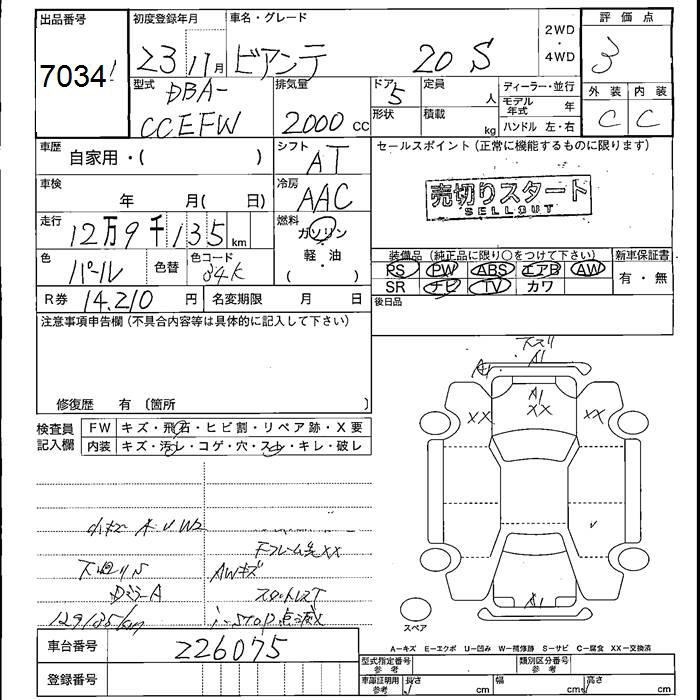 出品番号 初度登録年月 車名・グレード 評価点
7034 23 11月 ビアンテ 20S 2WD・4WD 3
型式 DBA-CCEFW 排気量 2000 cc ドア 5 形状 定員 人 積載 kg ディーラー・並行 モデル年式 年 ハンドル 左・右 外装 C 内装 C
車歴 自家用・( ) シフト AT セールスポイント (正常に機能するものに限ります)
車検 年 月( 日) 冷房 AAC 売切りスタート
SELLOUT
走行 12万9千135 km 燃料 ガソリン・軽油・( )
色 パール 色替 色コード 34K 装備品 (純正品に限り○をつけて下さい) 新車保証書
PS PW ABS エアB AW 有・無
SR ナビ TV カワ
R券 14.210 円 名変期限 月 日 後日品
注意事項申告欄 (不具合内容等は具体的に記入して下さい)
下スリ
A1 A1
A1
XX XX XX
修復歴 有 〔箇所 〕
検査員記入欄 FW キズ・飛石・ヒビ割・リペア跡・X要
内装 キズ・汚レ・コゲ・穴・スレ・キレ・破レ
小キズ A・U W2
下フレーム先XX
下廻りS AWキズ
DミラーA スタットレスT
129135km i-STOP点滅
A1
スペア
A-キズ E-エクボ U-凹み W-補修跡 S-サビ C-腐食 XX-交換済
車台番号 226075
登録番号
型式指定番号 参考 類別区分番号 参考
車庫証明用 参考 長さ cm 幅 cm 高さ cm